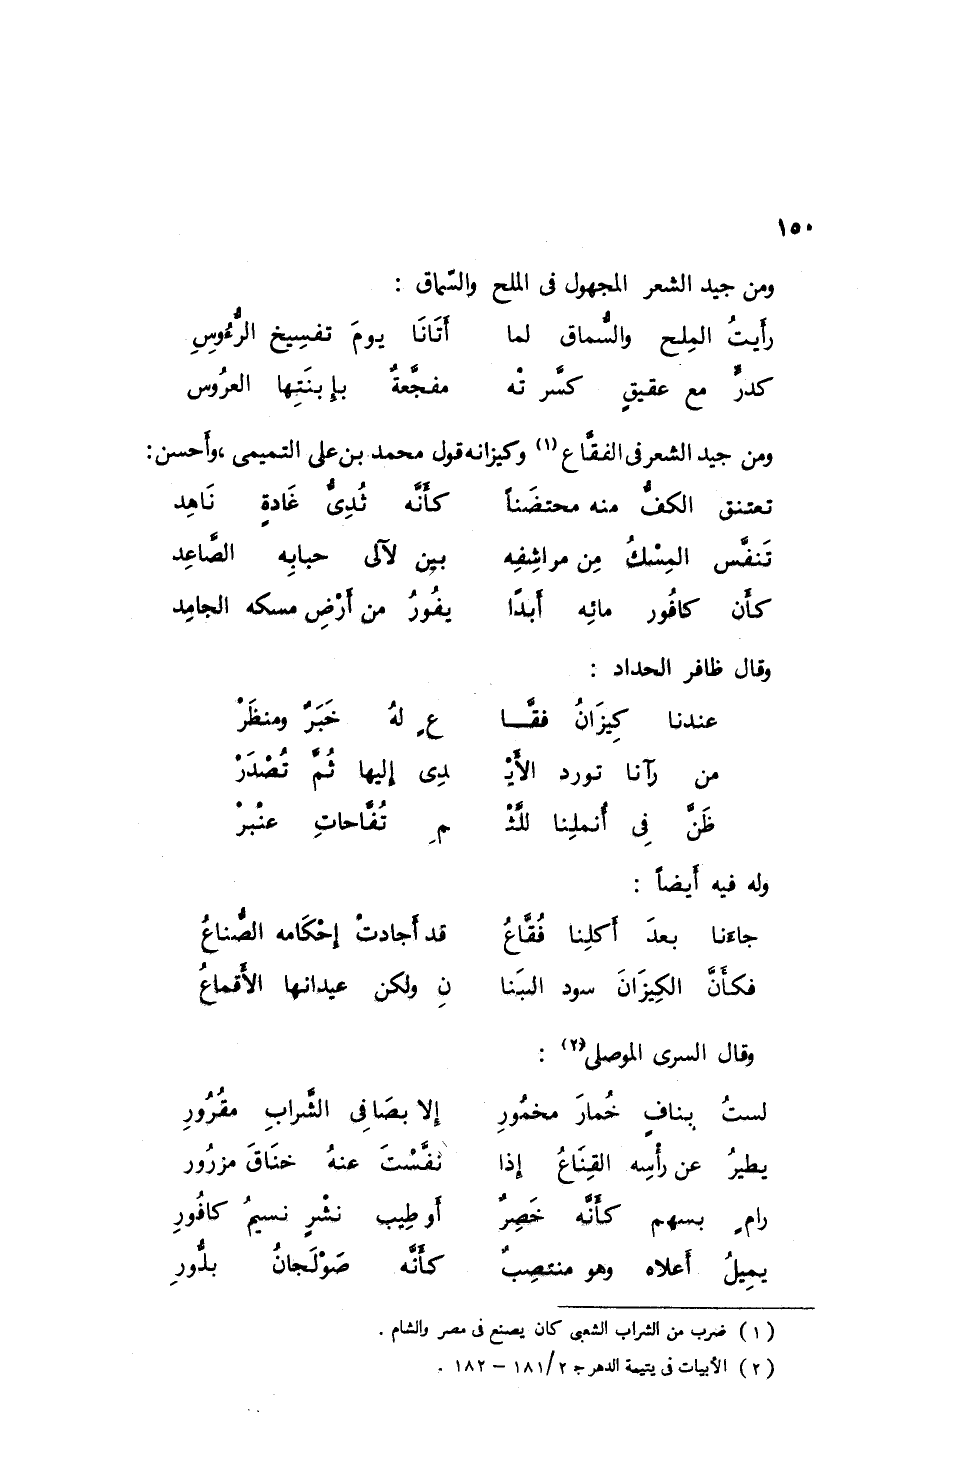 ١٥٠
ومن جيد الشعر المجهول فى الملح والسّماق :
رأَيتُ المِلح والسُّماق لما أَتَانَا يومَ تفسِيخ الرُّءُوسِ
كدرٍّ مع عقيقٍ كسَّرتْه مفجَّعةٌ بإبنَتِها العرُوس
ومن جيد الشعر فى الفقَّاع (١) وكيزانه قول محمد بن على التميمى ، وأَحسن :
تعتنق الكفُّ منه محتضَناً كأَنَّه ثُدِىُّ غَادةٍ نَاهِد
تَنفَّس المِسْكُ مِن مراشِفِه بين لآلى حبابِه الصَّاعِد
كأَن كافُور مائِه أَبدًا يفُورُ من أَرْضِ مسكه الجامِد
وقال ظافر الحداد :
عندنا كِيزَانُ فقَّـــا عٍ لهُ خَبَرٌ ومنظَرْ
من رآنا نورد الأَيْـ ـدِى إليها ثُمَّ تُصْدَرْ
ظَنَّ فِى أُنملِنا للَّثْـ ـمِ تُفَّاحاتِ عنْبرْ
وله فيه أَيضاً :
جاءَنا بعدَ أَكلِنا فُقَّاعُ قد أَجادتْ إحْكَامه الصُّناعُ
فكأَنَّ الكِيزَانَ سود البَنا نِ ولكن عيدانها الأَقماعُ
وقال السرى الموصلى (٢) :
لستُ بِنافٍ خُمارَ مخمُورِ إلا بصَافِى الشَّرابِ مقُرُورِ
يطيرُ عن رأْسِه القِنَاعُ إذا نفَّسْتَ عنهُ خنَاقَ مزرُور
رامٍ بسهم كأَنَّه خَصِرٌ أَو طِيب نشْرٍ نسيمُ كافُورِ
يمِيلُ أَعلاه وهو منتصِبٌ كأَنَّه صَوْلَجانُ بلُّورِ
(١) ضرب من الشراب الشعبى كان يصنع فى مصر والشام .
(٢) الأبيات فى يتيمة الدهر ج ٢/١٨١ – ١٨٢ .